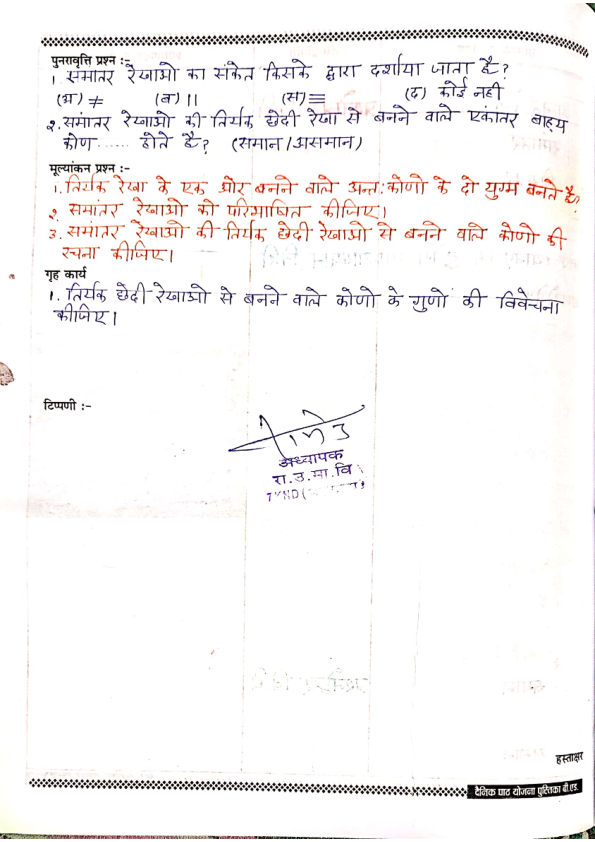 पुनरावृत्ति प्रश्न :-
1. समांतर रेखाओ का संकेत किसके द्वारा दर्शाया जाता है?
(अ) ≠ (ब) || (स) ≡ (द) कोई नही
२. समांतर रेखाओ की तिर्यक छेदी रेखा से बनने वाले एकांतर बाह्य
कोण ...... होते है? (समान / असमान)
मूल्यांकन प्रश्न :-
1. तिर्यक रेखा के एक ओर बनने वाले अन्त: कोणो के दो युग्म बनते है?
२. समांतर रेखाओ को परिभाषित कीजिए।
3. समांतर रेखाओ की तिर्यक छेदी रेखाओ से बनने वाले कोणो की
रचना कीजिए।
गृह कार्य
1. तिर्यक छेदी रेखाओ से बनने वाले कोणो के गुणों की विवेचना
कीजिए।
टिप्पणी :-
अध्यापक
रा.उ.मा.वि
हस्ताक्षर
दैनिक पाठ योजना पुस्तिका बी.एड.